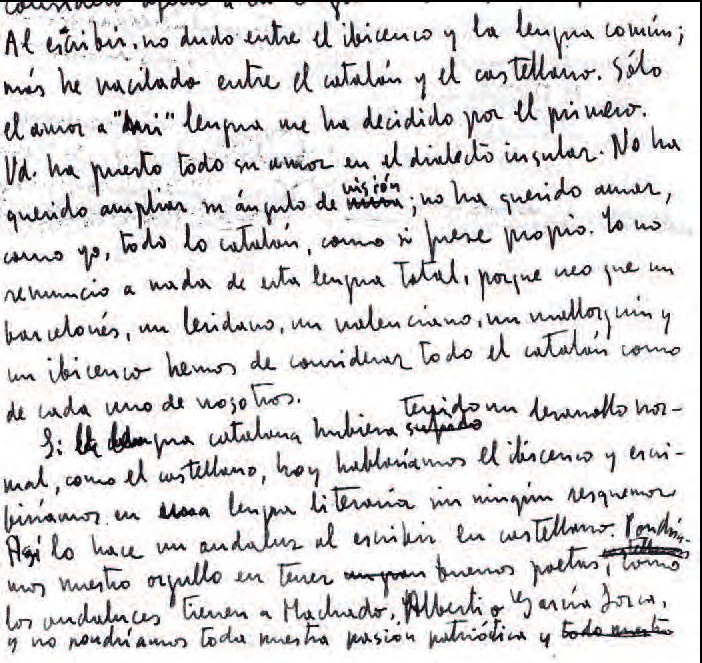 Al escribir, no dudo entre el ibicenco y la lengua común;
más he vacilado entre el catalán y el castellano. Sólo
el amor a "mi" lengua me ha decidido por el primero.
Vd. ha puesto todo su amor en el dialecto insular. No ha
querido ampliar su ángulo de visión; no ha querido amar,
como yo, todo lo catalán, como si fuese propio. Yo no
renuncio a nada de esta lengua total, porque veo que un
barcelonés, un leridano, un valenciano, un mallorquín y
un ibicenco hemos de considerar todo el catalán como
de cada uno de nosotros.
Si la lengua catalana hubiera tenido un desarrollo nor-
mal, como el castellano, hoy hablaríamos el ibicenco y escri-
biríamos en lengua literaria sin ningún resquemor.
Así lo hace un andaluz al escribir en castellano. Pondría-
mos nuestro orgullo en tener buenos poetas, como
los andaluces tienen a Machado, Alberti o García Lorca,
y no pondríamos toda nuestra pasión patriótica y